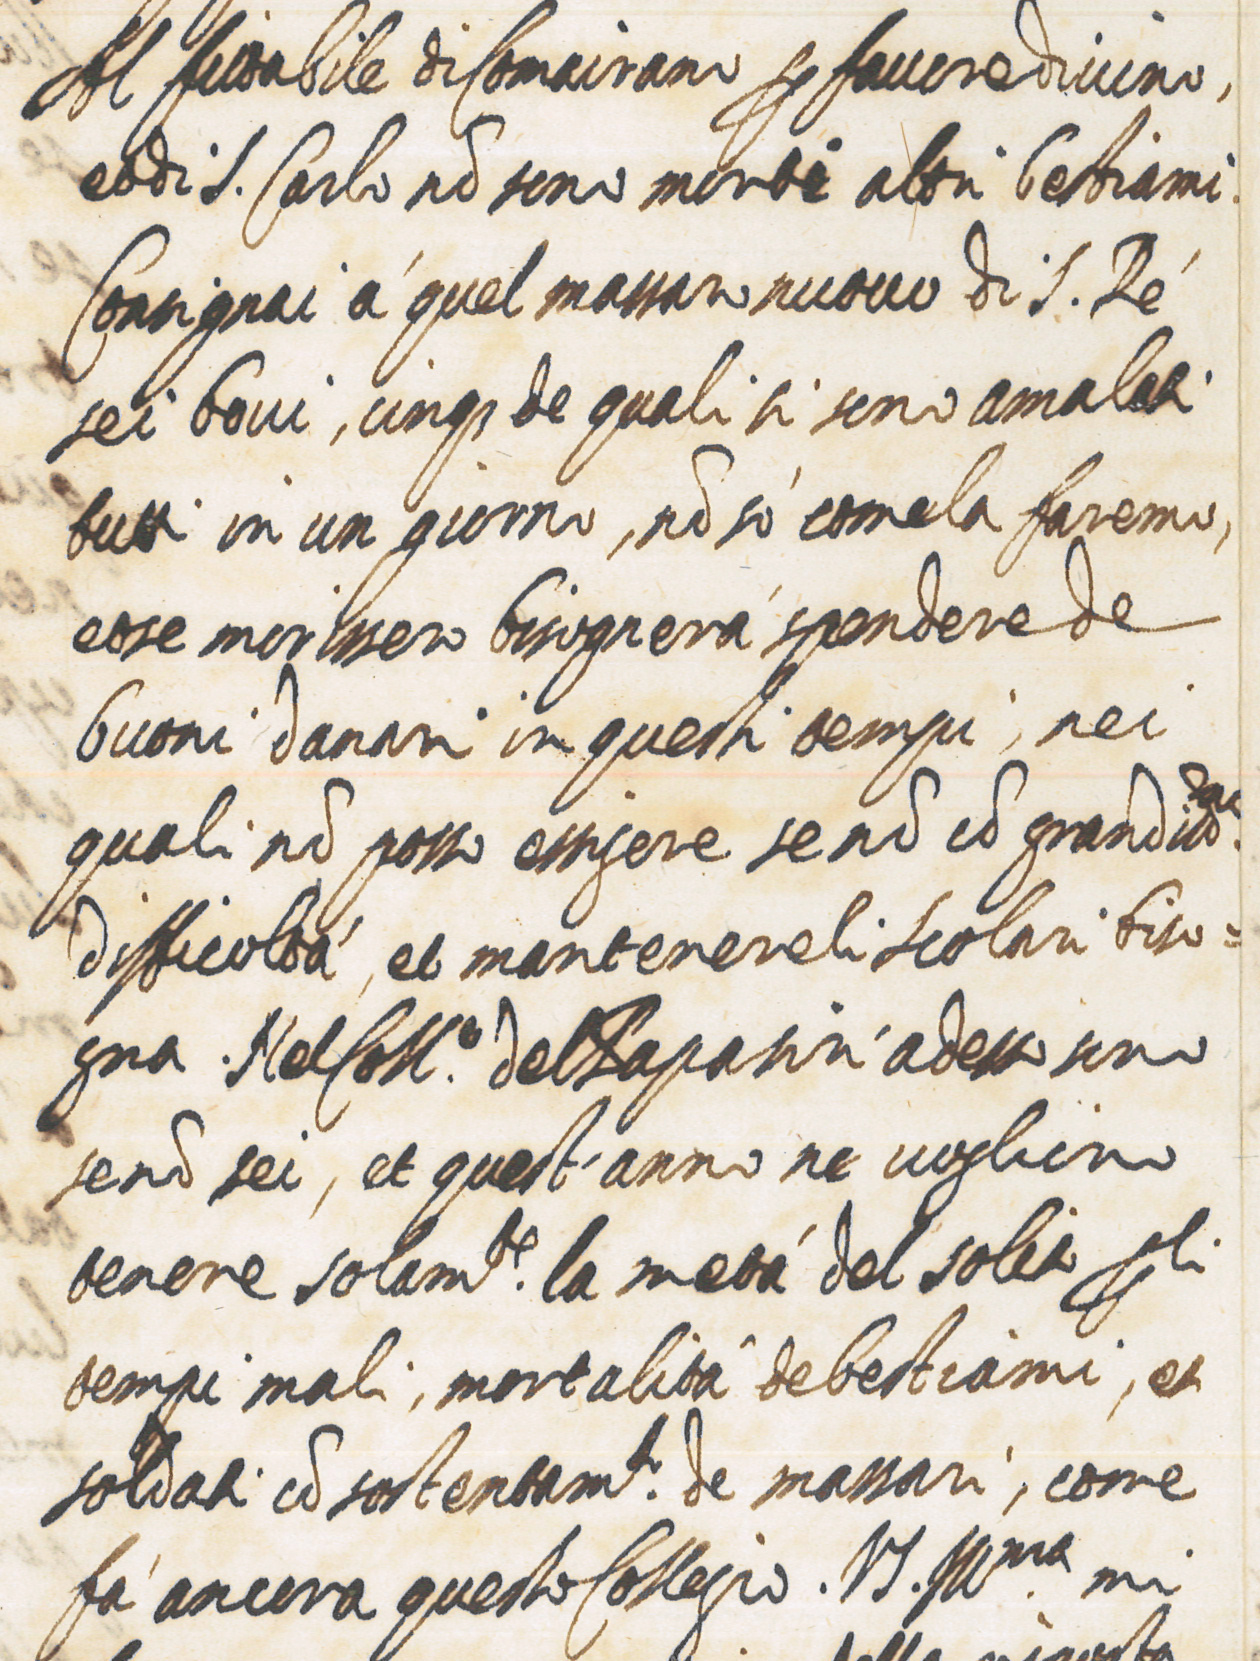 Al fittabile di Comairano p favore divino,
et di S. Carlo nō sono morti altri bestiami.
Consignai á quel massaro nuovo di S. Ré
sei bovi, cinq3 de quali si sono amalati
tutti in un giorno, nō só come la faremo,
et se morissero bisognerá spendere de
buoni danari in questi tempi, nei
quali nō posso essigere se nō cō grandiss.
difficoltá, et mantenere li scolari biso=
gna. Nel Coll.o del Papa sin' adesso sono
se nō sei, et quest'anno ne vogliono
tenere solam.te la metá del solito p li
tempi mali, mortalitâ de bestiami, et
soldati cō sostentam.to de massari, come
fá ancora questo Collegio. V.S. Ill.ma mi
della risposta